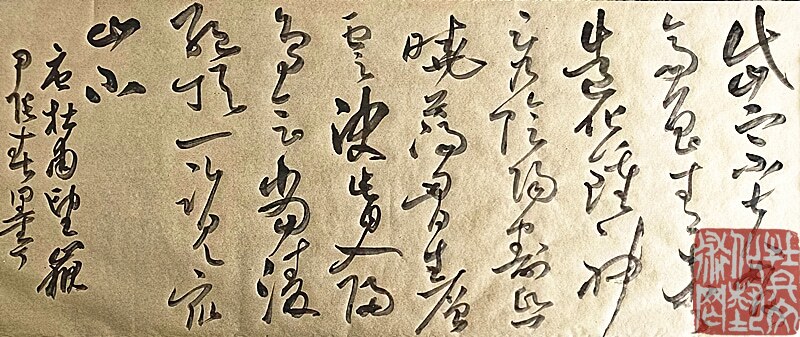 岱宗夫如何
齊魯青未了
造化鍾神
秀陰陽割昏
曉蕩胸生層
雲決眥入歸
鳥會當凌
絕頂一覽眾
山小
唐杜甫望嶽
甲辰春墨